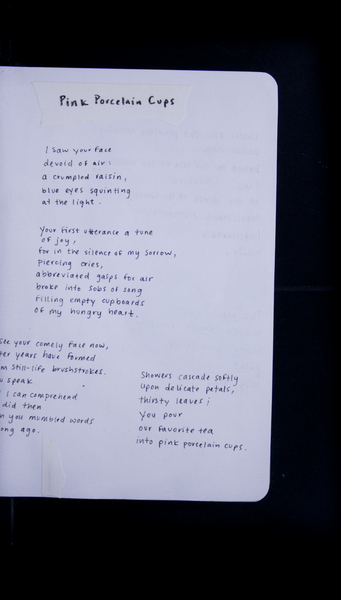 Pink Porcelain Cups
I saw your face
devoid of air:
a crumpled raisin,
blue eyes squinting
at the light.
Your first utterance a tune
of joy,
for in the silence of my sorrow,
piercing cries,
abbreviated gasps for air
broke into sobs of song
filling empty cupboards
of my hungry heart.
see your comely face now,
years have formed
still-life brushstrokes.
speak
I can comprehend
did then
you mumbled words
ago.
Showers cascade softly
upon delicate petals,
thirsty leaves;
you pour
our favorite tea
into pink porcelain cups.